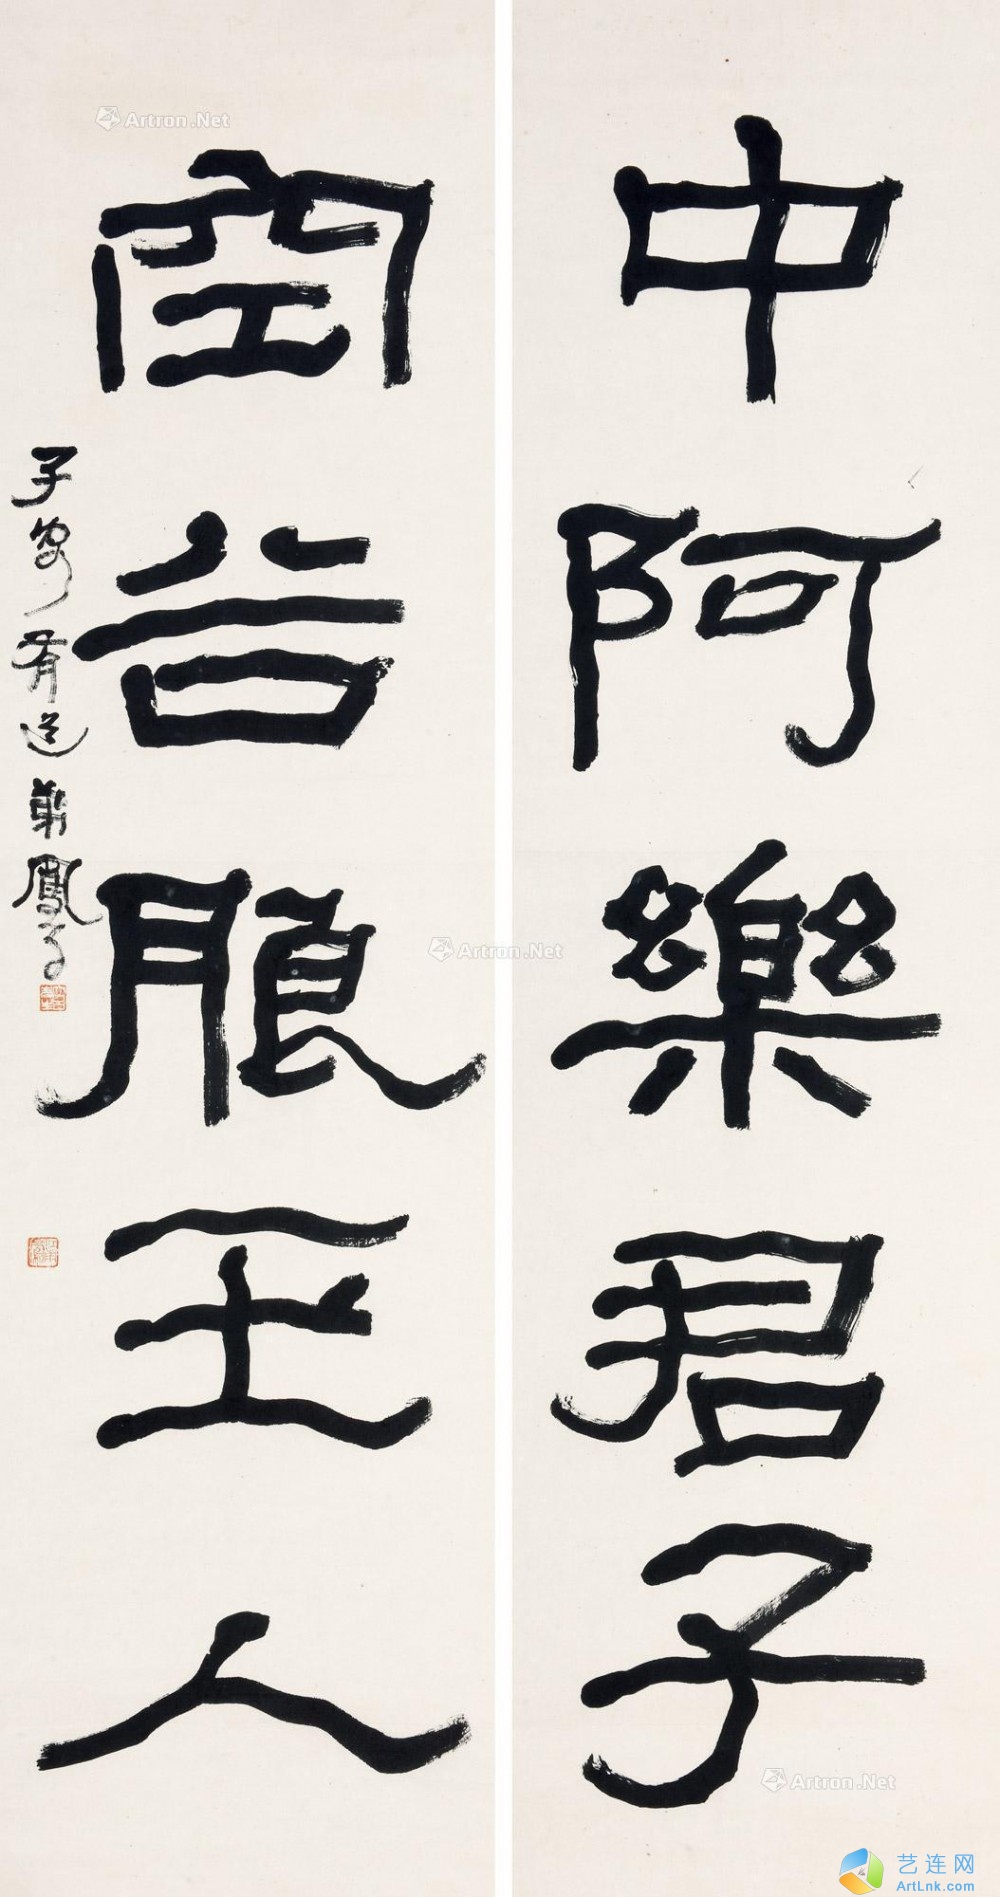 中阿樂君子
空谷朖玉人
子 有道 弟 鳳子
Artron.Net
Artron.Net
Artron.Net
艺连网
ArtLnk.com